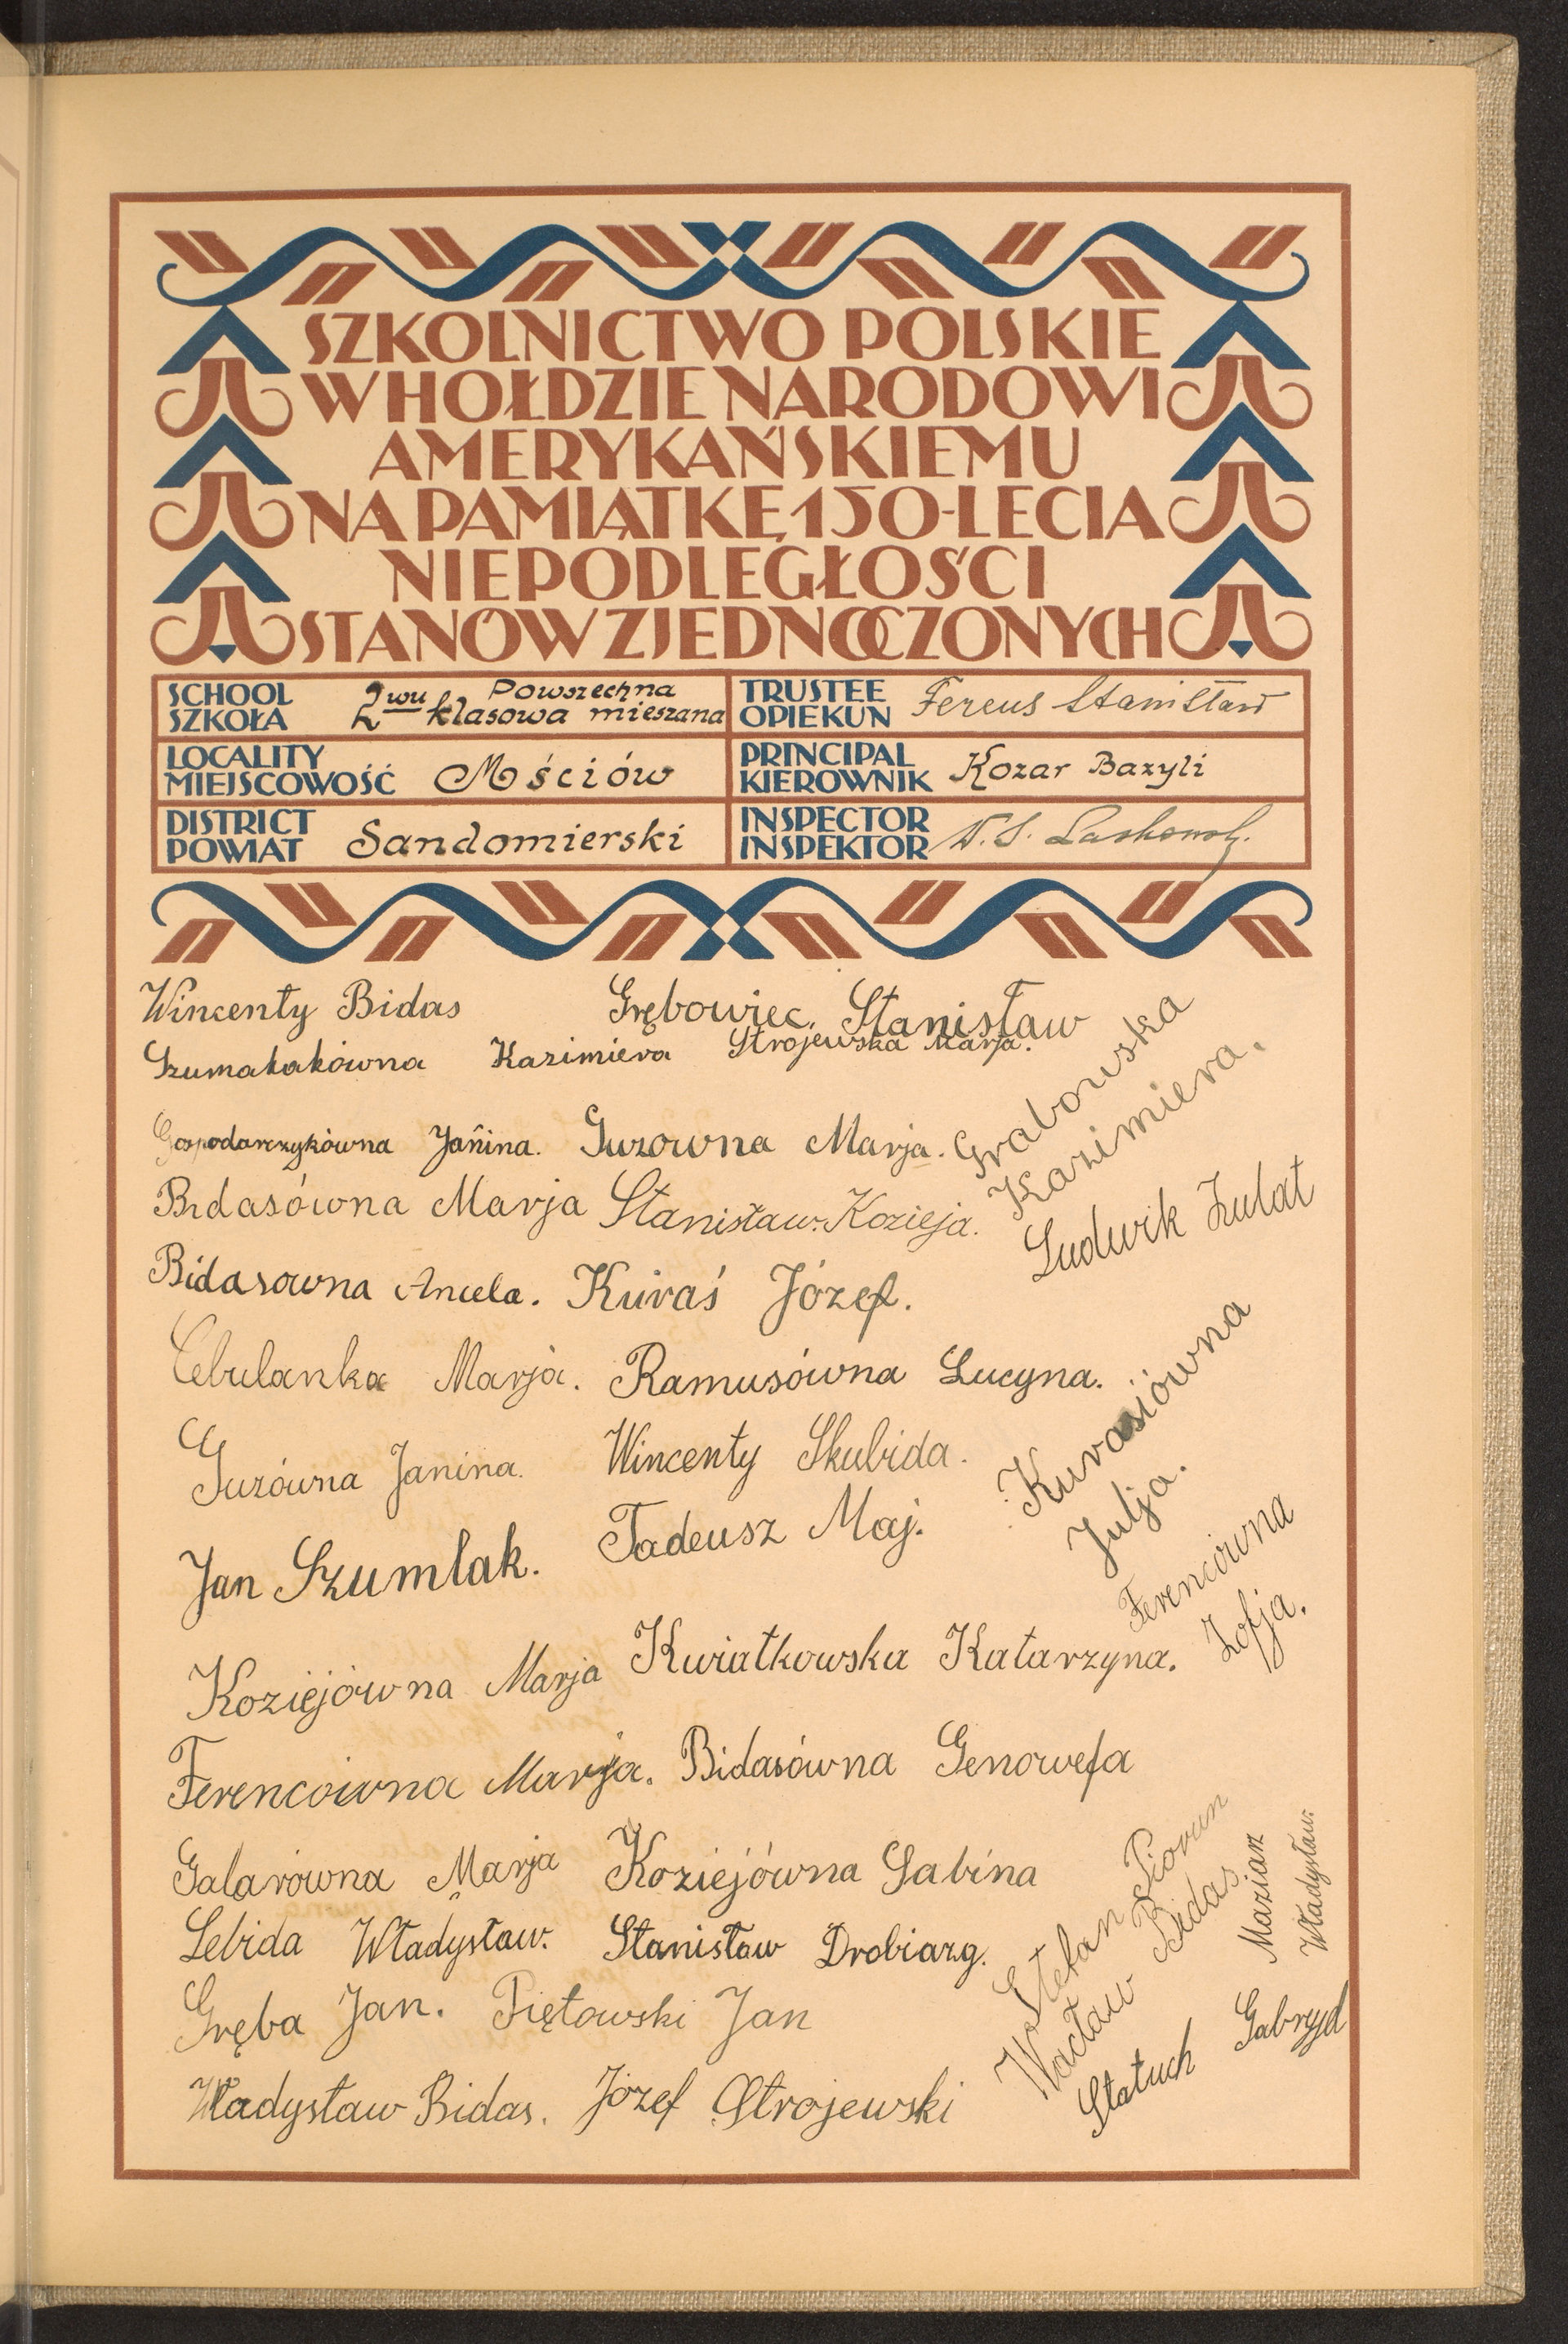 SZKOLNICTWO POLSKIE
W HOŁDZIE NARODOWI
AMERYKAŃSKIEMU
NA PAMIĄTKĘ 150-LECIA
NIEPODLEGŁOŚCI
STANÓW ZJEDNOCZONYCH
SCHOOL
SZKOŁA
2wu klasowa Powszechna mieszana
TRUSTEE
OPIEKUN
Fereus Stanisław
LOCALITY
MIEJSCOWOŚĆ
Mściów
PRINCIPAL
KIEROWNIK
Kozar Bazyli
DISTRICT
POWIAT
Sandomierski
INSPECTOR
INSPEKTOR
Wincenty Bidas
Grębowiec. Stanisław
Kazimiera
Strojewska Marja.
Gospodarczykówna Janina.
Guzowna Marja.
Grabowska
Kazimiera.
Bidasówna Marja
Stanisław Kozieja.
Ludwik Żulat
Bidasowna Aniela.
Kuraś Józef.
Cebulanka Marja.
Ramusówna Lucyna.
Guzówna Janina.
Wincenty Skubida.
Kurasiówna
Julja.
Jan Szumlak.
Tadeusz Maj.
Ferencówna
Zofja.
Koziejówna Marja
Kwiatkowska Katarzyna.
Ferencówna Marja.
Bidasówna Genowefa
Galarówna Marja
Koziejówna Sabina
Lebida Władysław.
Stanisław Drobiazg.
Gręba Jan.
Piętowski Jan
Władysław Bidas.
Józef Strojewski
Stefan Piorun
Wacław Bidas
Marian
Władysław
Statuch